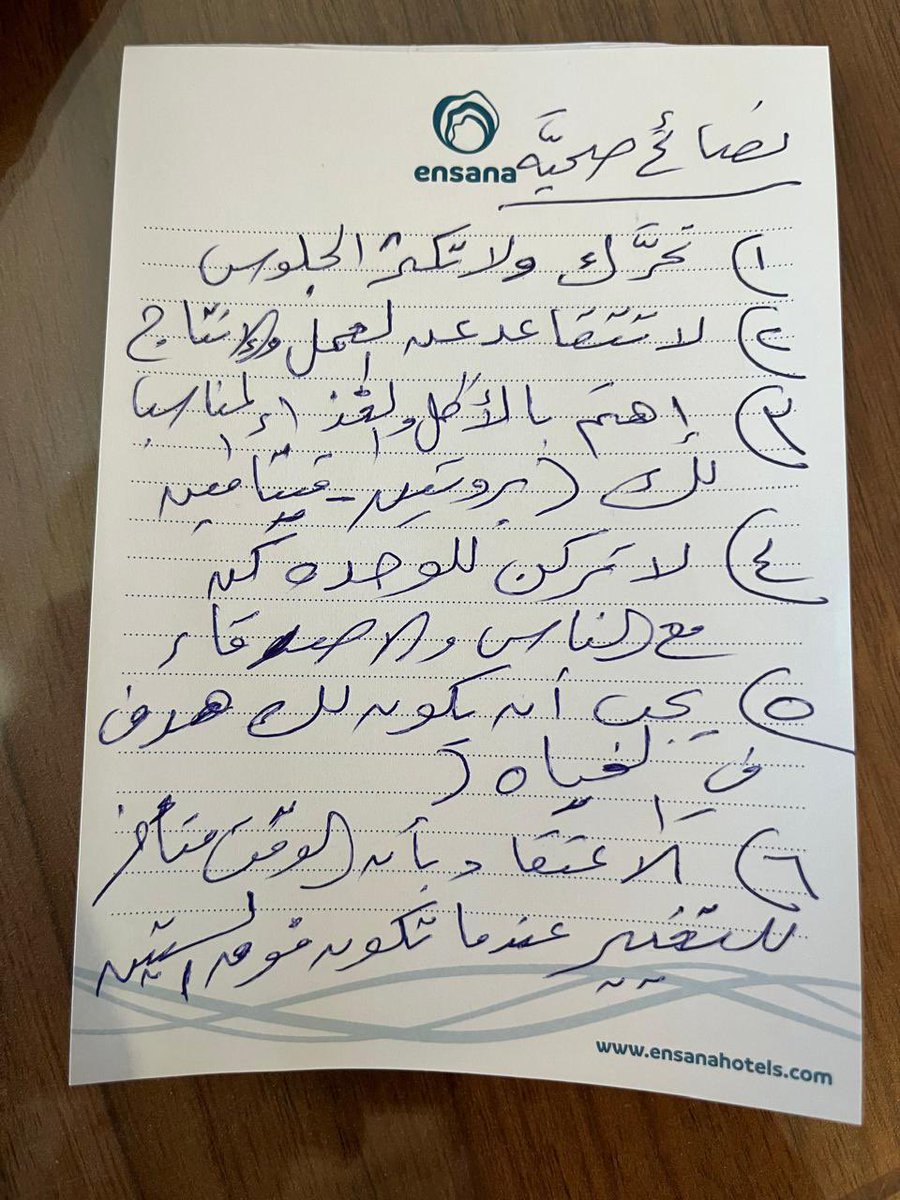 ensana
نصائح صحيَّة
١) تحرَّك ولا تكثر الجلوس
٢) لا تتقاعد عن العمل والإنتاج
٣) إهتم بالأكل والغذاء المناسب
لك (بروتين - فيتامين
٤) لا تركن للوحده كن
مع الناس والاصدقاء
٥) يجب أن يكون لك هدف
في الحياه )
٦) الاعتقاد بأن الوقت متأخر
للتغيير عندما تكون فوق الستين
www.ensanahotels.com